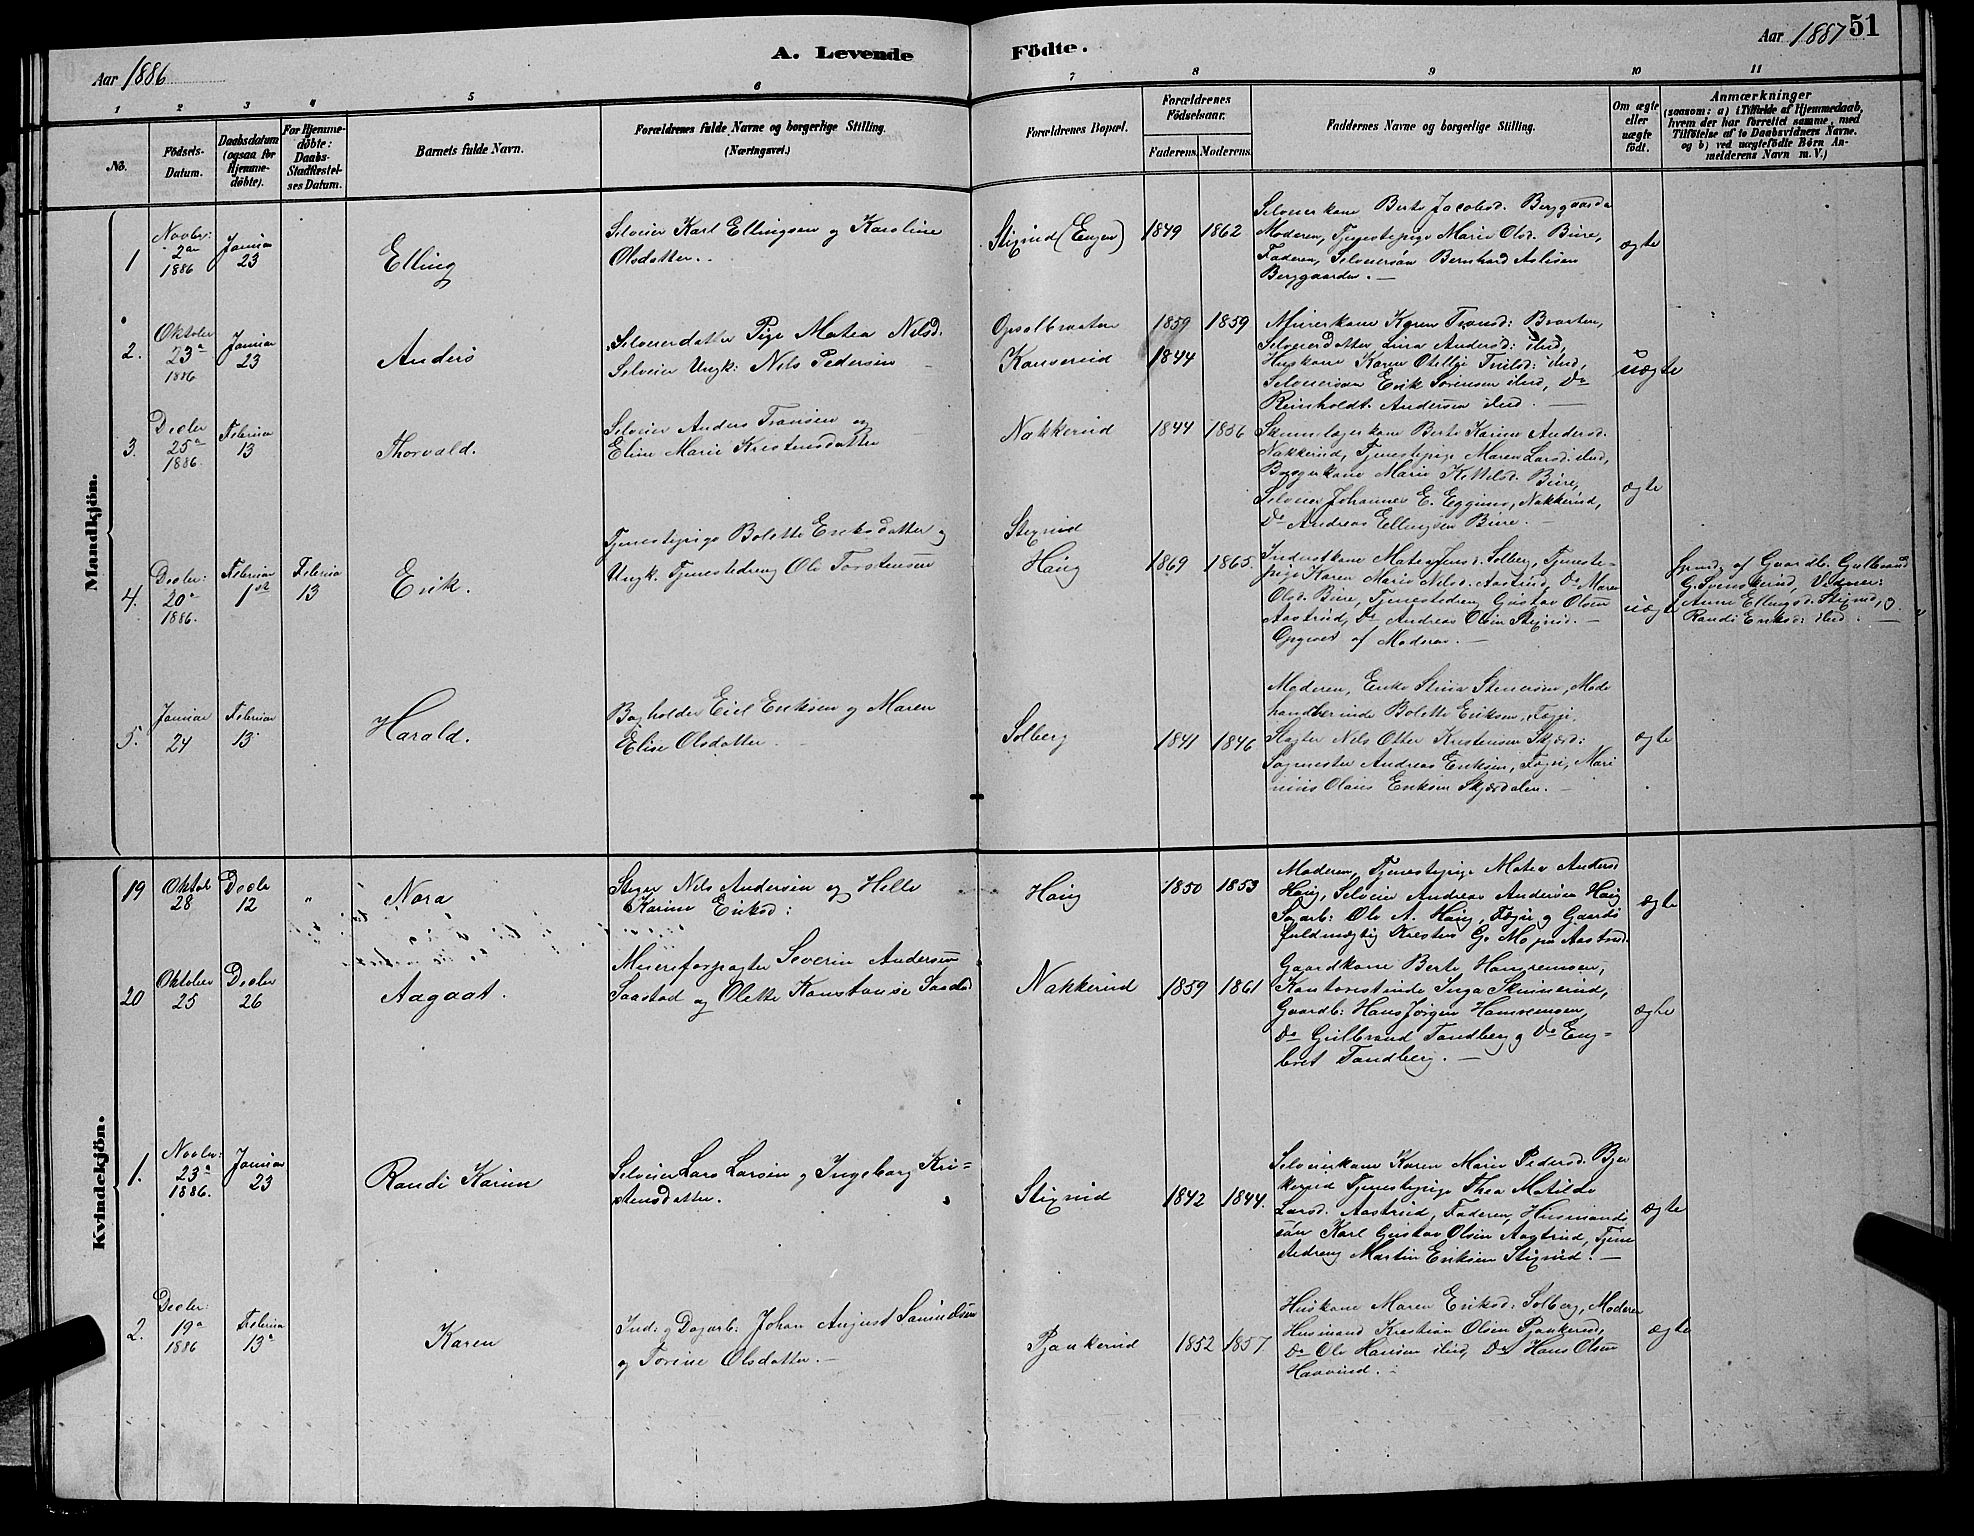 Aar 1886
A. Levende
Födte.
Aar 1887
51
1
2
3
4
5
6
7
8
9
10
11
No.
Födsels-
Datum.
Daabsdatum
(ogsaa for
Hjemme-
döbte).
For Hjemme-
döbte:
Daabs-
Stadfæstel-
ses Datum.
Barnets fulde Navn.
Forældrenes fulde Navne og borgerlige Stilling.
(Næringsvei.)
Forældrenes Bopæl.
Forældrenes
Födselsaar.
Faderens.
Moderens.
Faddernes Navne og borgerlige Stilling.
Om ægte
eller
uægte
födt.
Anmærkninger
(saasom: a) i Tilfælde af Hjemmedaab,
hvem der har forrettet samme, med
Tilföielse af to Daabsvidners Navne.
og b) ved uægtefödte Børn An-
melderens Navn m. V.)
Mandkjön.
1
Novbr:
2den
1886
Januar
23
Elling
Selveier Karl Ellingsen og Karoline
Olsdatter.
Stixrud (Engen)
1849
1862
Selveierkone Berte Jacobsd. Berggaarden
Moderen, Tjenestepige Marie Olsd. Bure,
Faderen, Selveiersøn Bernhard Aslesen
Berggaarden.
ægte
2.
Oktober
23a
1886
Januar
23
Anders
Selveierdatter Pige Matea Nilsd.
Selveier Ungk: Nils Pedersen
Opsalbraaten
Kanserud
1859
1859
1844
Murerkone Karen Transd: Braaten,
Selveierdatter Lina Andersd: ibid,
Huskone Karen Otellie Trulsd: ibid,
Selveiersøn Erik Sorensen ibid, Do
Reinholdt Andersen ibid.
uægte
3.
Decbr
25a
1886.
Februar
13
Thorvald.
Selveier Anders Transen og
Eline Marie Kristensdatter
Nakkerud
1844
1856
Berte Karine Andersd.
Nakkerud, Tjenestepige Maren Larsd: ibid,
Marie Kittilsd. Bure,
Selveier Johannes E. Nakkerud,
Do Andreas Ellingsen Bure.
ægte
4.
Decbr:
20a
1886.
Februar
1ste
Februar
13
Erik.
Tjenestepige Bolette Eriksdatter og
Ungk. Tjenestedreng Ole Torstensen
Stixrud
Haug
1869
1865.
Inderstkone Matea Jensd: Solberg, Tjeneste-
pige Karen Marie Nilsd. Aastrud, Do Maren
Olsd. Bure, Tjenestedreng Gustav Olsen
Aastrud, Do Andreas Olsen Stixrud.
Opgivet af Moderen.
uægte
af Gaardb. Gulbrand
G. Svenskerud, Vidner:
Anne Ellingsd. Stixrud, og
Randi Eriksd: ibid.
5.
Januar
24
Februar
13
Harald.
Bogholder Eiel Eriksen og Maren
Elise Olsdatter.
Solberg
1841
1846
Moderen, Enke Stina Stenersen, Mode
handlerinde Bolette Eriksen,
Slagter Nils Otter Kristensen Skjærd:
Sagmester Andreas Eriksen, Mari
nius Olaus Eriksen Skjærdalen.
ægte
Kvindekjön.
19
Oktob
28
Decbr
12
"
Nora
Steger Nils Andersen og Helle
Karine Eriksd:
Haug
1850
1853
Moderen, Tjenestepige Matea Andersd
Haug, Selveier Andreas Andersen Haug
Sagarb: Ole A. Haug, og Gaards
fuldmægtig Kresten G. Moe paa Aastrud.
ægte
20
Oktober
25
Decbr
26
Aagaat.
Meieriforpagter Severin Andersen
Saastad og Olette Konstanse Saastad
Nakkerud
1859
1861
Gaardkone Berte Hamremoen,
Kontoristinde Inga Skinnerud,
Gaardb: Hans Jørgen Hamremoen,
Do Gulbrand Tandberg og Do Eng-
bret Tandberg.
ægte
1.
Novbr:
23a
1886.
Januar
23
Randi Karine
Selveier Lars Larsen og Ingeborg Kri-
stensdatter.
Stixrud
1842
1844.
Selveierkone Karen Marie Pedersd. Bjer
kerud Tjenestepige Thea Matilde
Larsd. Aastrud, Faderen, Husmands
søn Karl Gustav Olsen Aastrud, Tjene
stedreng Martin Eriksen Stixrud.
ægte
2.
Decbr:
19a
1886
Februar
13a
Karen
Ind: og Dagarb: Johan August Samuelsen
og Torine Olsdatter.
Pjankerud
1852
1857
Huskone Maren Eriksd: Solberg, Moderen
Husmand Kristian Olsen Pjankerud,
Do Ole Hansen ibid, Do Hans Olsen
Haverud.
ægte